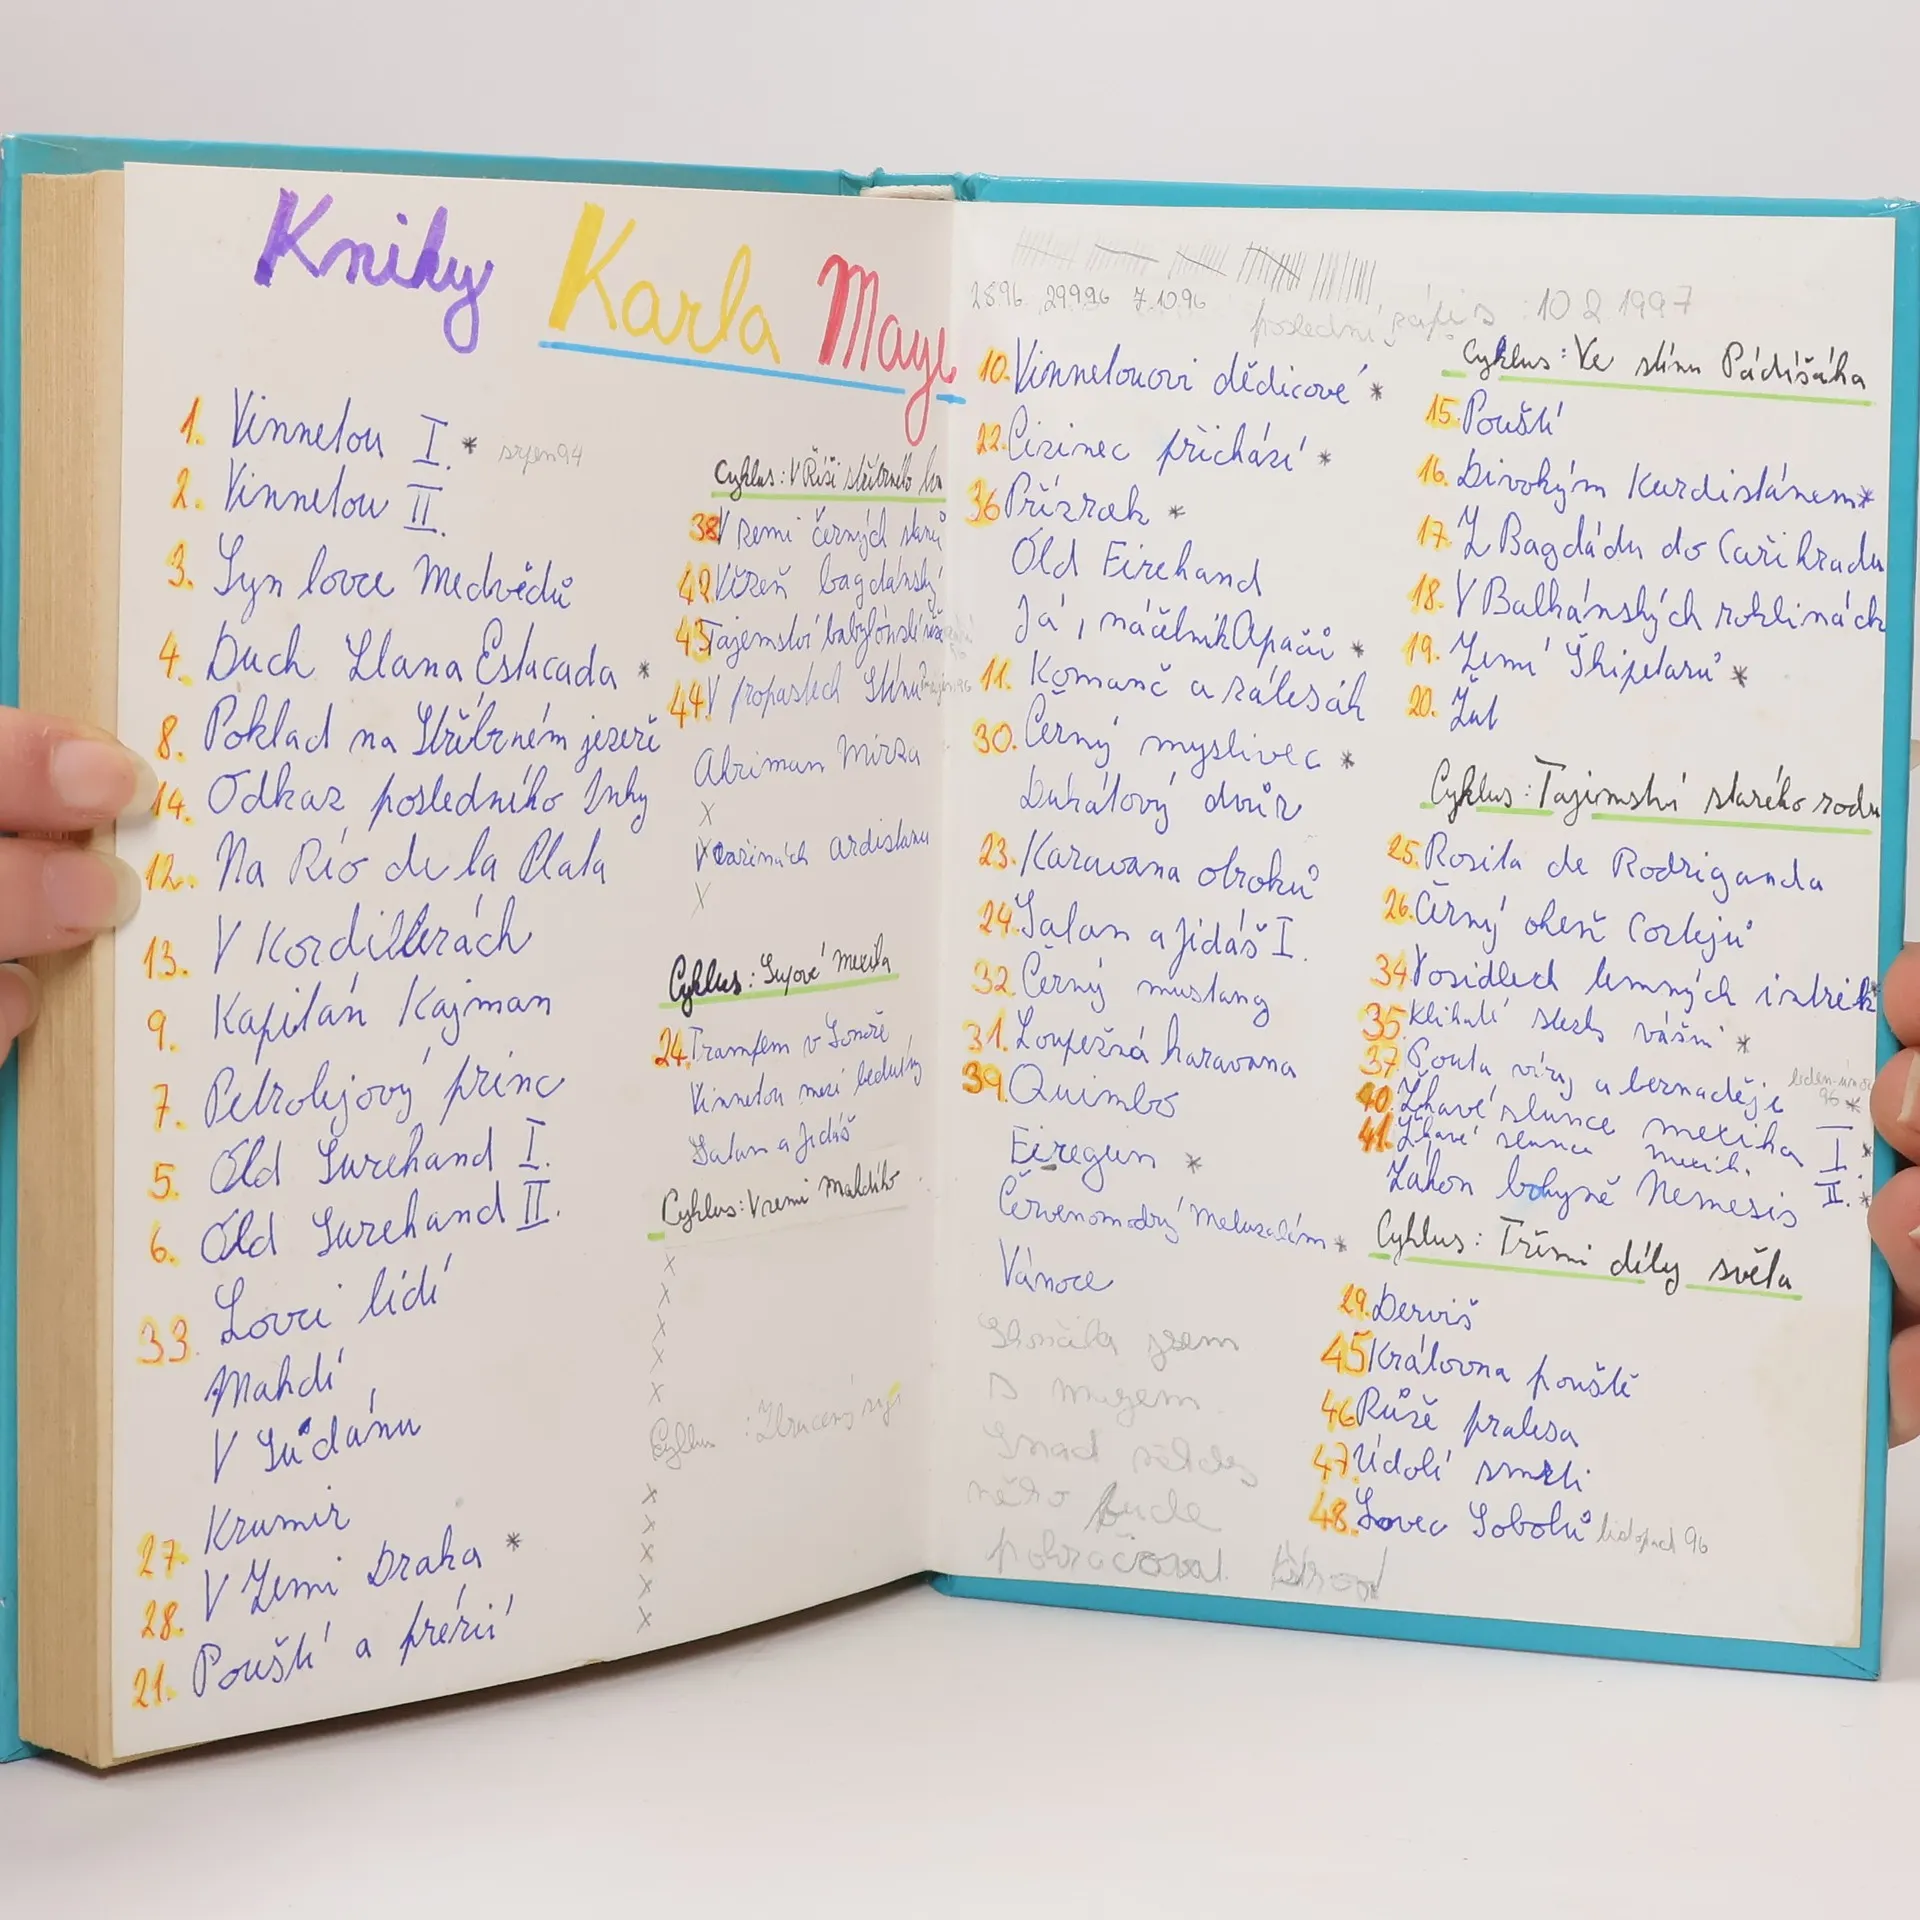 Knihy Karla Maye
1. Vinnetou I. * srpen 94
2. Vinnetou II.
3. Syn lovce Medvědů
4. Duch Llana Estacada *
8. Poklad na Stříbrném jezeře
14. Odkaz posledního Inky
12. Na Río de la Plata
13. V Kordillerách
9. Kapitán Kajman
7. Petrolejový princ
5. Old Surehand I.
6. Old Surehand II.
33. Lovci lidí
Mahdí
V Súdánu
27. Krumir
28. V Zemi Draka *
21. Pouští a prérií
Cyklus: V Říši stříbrného lva
38. V zemi černých stanů
42. Vězeň bagdádský
43. Tajemství babylónské věže
44. V propastech Stínu
Ahriman Mirza
X
V ardistanu
X
Cyklus: Supové mexika
24. Trampem v Sonoře
Vinnetou mezi beduíny
Satan a Jidáš
Cyklus: V zemi Mahdího
x
x
x
x
x
Cyklus: Ztracený syn
x
x
x
x
x
28.96 29.9.96 7.10.96
poslední zápis: 10 2 1997
10. Vinnetouovi dědicové *
22. Cizinec přichází *
36 Přízrak *
Old Firehand
Já, náčelník Apačů *
11. Komanč a zálesák
30. Černý myslivec *
Dukátový dvůr
23. Karavana otroků
24. Satan a Jidáš I.
32. Černý mustang
31. Loupežná karavana
39. Quimbo
Firegun *
Červenomodrý Metuzalém *
Vánoce
Skončila jsem
s mayem.
Snad
něho bude
pokračovat.
Cyklus: Ve stínu Pádišáha
15. Pouští
16. Divokým Kurdistánem *
17. Z Bagdádu do Cařihradu
18. V Balkánských roklinách
19. Zemí Škipetarů *
20. Žut
Cyklus: Tajemství starého rodu
25. Rosita de Rodriganda
26. Černý oheň Cortejů
34. V osidlech temných intrik
35. Klikatí stezk vášní *
37. Pouta víry a beznaděje leden-únor 96 *
40. Žhavé slunce mexika I. *
41. Žhavé slunce mexik. II. *
Zákon bohyně Nemesis
Cyklus: Třemi díly světa
29. Derviš
45 Královna pouště
46 Růže pralesa
47 Údolí smrti
48. Lovec Sobolů listopad 96